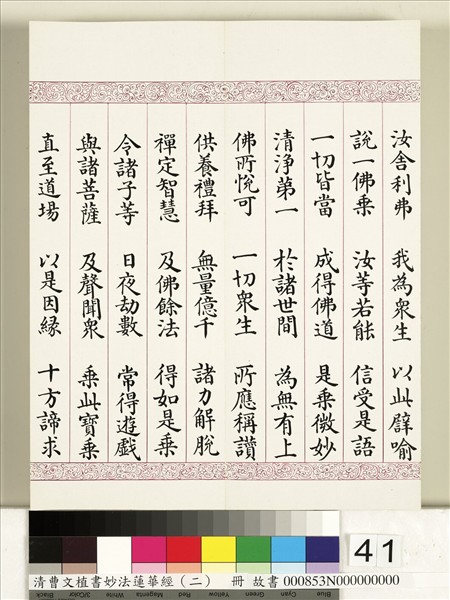 汝舍利弗 我為眾生 以此譬喻
說一佛乘 汝等若能 信受是語
一切皆當 成得佛道 是乘微妙
清淨第一 於諸世間 為無有上
佛所悅可 一切眾生 所應稱讚
供養禮拜 無量億千 諸力解脫
禪定智慧 及佛餘法 得如是乘
令諸子等 日夜劫數 常得遊戲
與諸菩薩 及聲聞眾 乘此寶乘
直至道場 以是因緣 十方諦求
41
Blue Cyan Green Yellow Red Magenta White 3/Color Black
清曹文植書妙法蓮華經（二） 冊 故書 000853N000000000